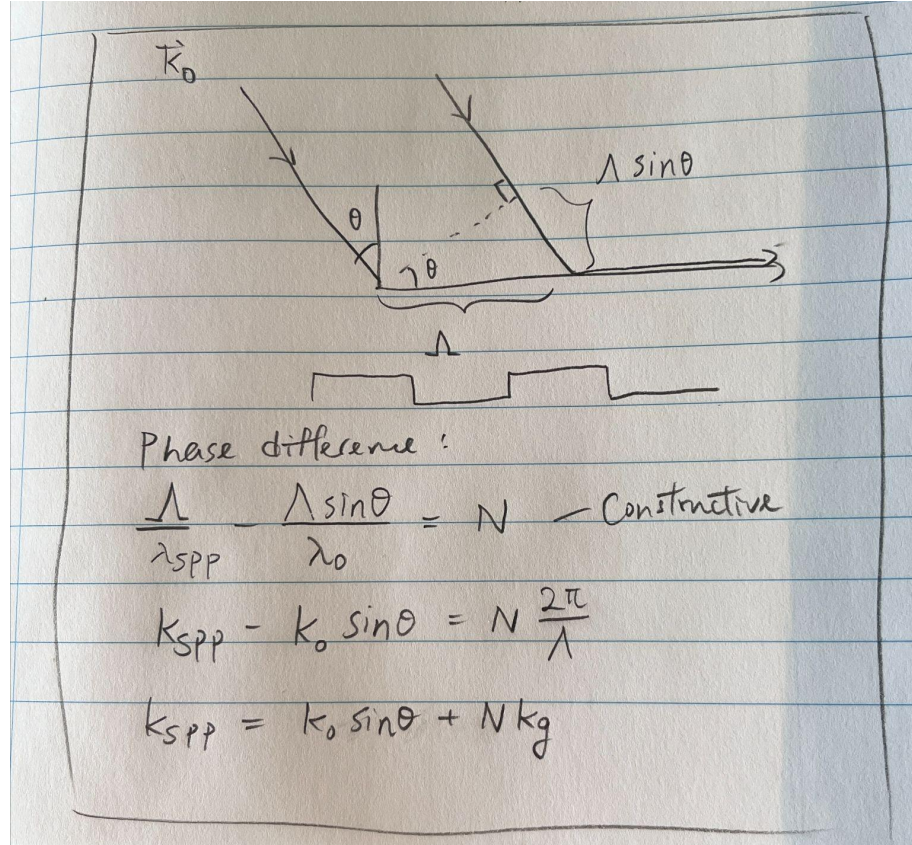 k⃗₀
Λ sinθ
θ
θ
Λ
Phase difference :
Λ/λSPP - Λ sinθ/λ₀ = N — Constructive
kSPP - k₀ sinθ = N 2π/Λ
kSPP = k₀ sinθ + N kg